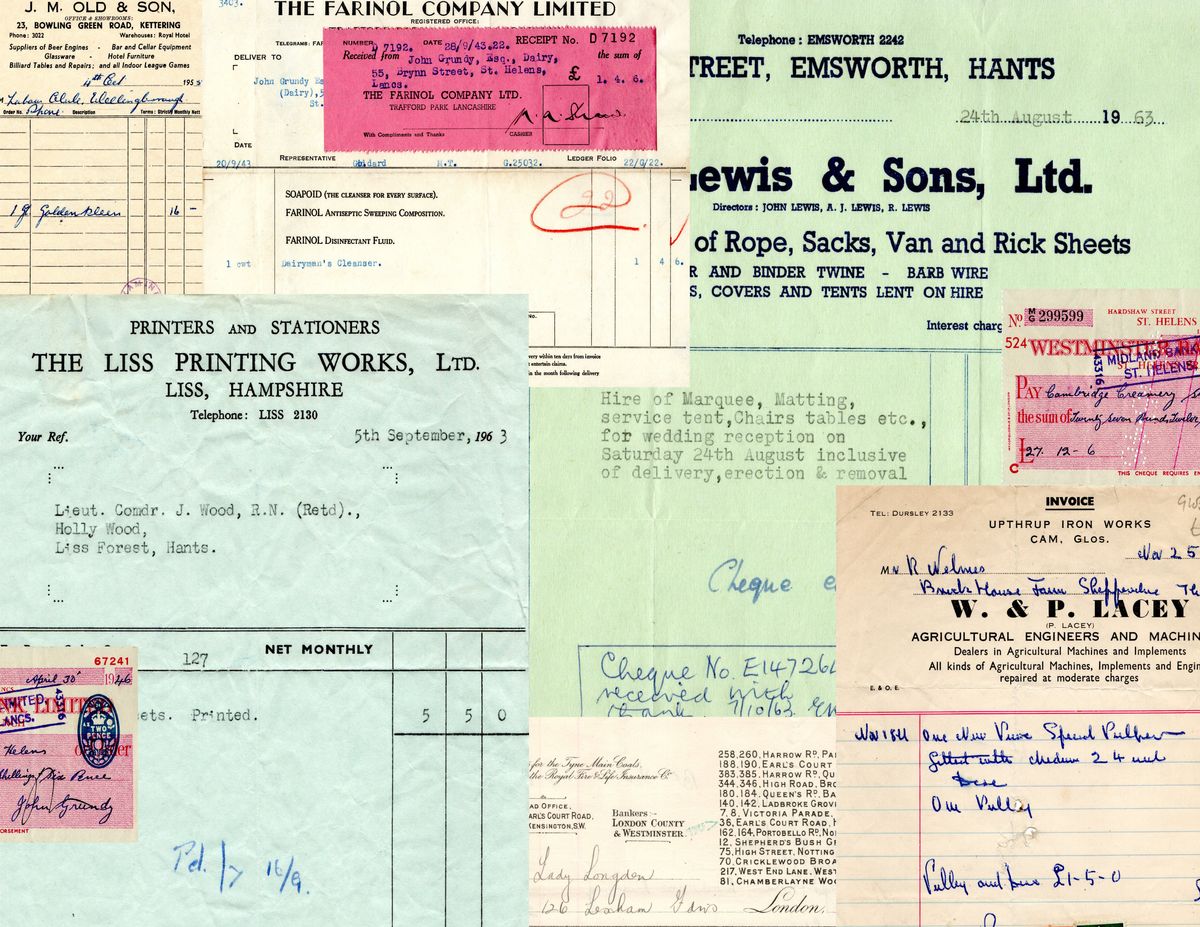 J. M. OLD & SON,
OFFICE & SHOWROOMS:
23, BOWLING GREEN ROAD, KETTERING
Phone: 3022 Warehouses: Royal Hotel
Suppliers of Beer Engines - Bar and Cellar Equipment
Glassware - Hotel Furniture
Billiard Tables and Repairs; and all Indoor League Games
4th Oct 195
Labour Club, Wellingborough
Order No. Phone Description Terms: Strictly Monthly Nett
1 g Golden Kleen 16 -
3403.
THE FARINOL COMPANY LIMITED
REGISTERED OFFICE:
TELEGRAMS: FAR
DELIVER TO
John Grundy Es
(Dairy),5
St.
DATE
20/9/43
REPRESENTATIVE Goddard M.T. G.25032. LEDGER FOLIO 22/G/22.
NUMBER D 7192. DATE 28/9/43.22. RECEIPT No. D 7192
Received from John Grundy, Esq., Dairy, the sum of
55, Brynn Street, St. Helens, £ 1. 4. 6.
Lancs.
THE FARINOL COMPANY LTD.
TRAFFORD PARK LANCASHIRE
With Compliments and Thanks CASHIER
SOAPOID (THE CLEANSER FOR EVERY SURFACE).
FARINOL ANTISEPTIC SWEEPING COMPOSITION.
FARINOL DISINFECTANT FLUID.
1 cwt Dairyman's Cleanser. 1 4 6.
22
No.
very within ten days from invoice
t entertain claims.
in the month following delivery
Telephone: EMSWORTH 2242
TREET, EMSWORTH, HANTS
24th August 19 63
ewis & Sons, Ltd.
Directors: JOHN LEWIS, A. J. LEWIS, R. LEWIS
of Rope, Sacks, Van and Rick Sheets
R AND BINDER TWINE - BARB WIRE
S, COVERS AND TENTS LENT ON HIRE
Interest charg
Hire of Marquee, Matting,
service tent,Chairs tables etc.,
for wedding reception on
Saturday 24th August inclusive
of delivery,erection & removal
Cheque e
Cheque No. E147262
received with
thank 7/10/63
No. M/G 299599
HARDSHAW STREET
ST. HELENS
524 WESTMINSTER BA
MIDLAND BANK
ST. HELENS
43316
PAY Cambridge Creamery
the sum of Twenty seven Pounds, Twelve
£ 27. 12-6
C THIS CHEQUE REQUIRES EN
PRINTERS AND STATIONERS
THE LISS PRINTING WORKS, LTD.
LISS, HAMPSHIRE
Telephone: LISS 2130
Your Ref. 5th September, 196 3
Lieut. Comdr. J. Wood, R.N. (Retd).,
Holly Wood,
Liss Forest, Hants.
127 NET MONTHLY
ets. Printed. 5 5 0
Pd. 16/9.
67241
April 30 1946
NK LIMIT
LIMITED,
ANCS.
43316
TWO PENCE
Helens or Order
Shillings & Six Pence
John Grundy
ORSEMENT
for the Tyne Main Coals,
the Royal Fire & Life Insurance Co
AD OFFICE,
EARL'S COURT ROAD,
KENSINGTON,S.W.
Bankers:
LONDON COUNTY
& WESTMINSTER
258,260,HARROW RD, PA
188,190,EARL'S COURT
383,385,HARROW RD, QU
344,346,HIGH ROAD, BRO
180,184,QUEEN'S RD, BA
140,142,LADBROKE GROV
7,8,VICTORIA PARADE,
36,EARL'S COURT ROAD, H
162,164,PORTOBELLO RD, NO
12,SHEPHERD'S BUSH G
75,HIGH STREET, NOTTING
70,CRICKLEWOOD BROA
217,WEST END LANE, WEST
81,CHAMBERLAYNE WOO
Lady Longden
126 Lexham Gdns London.
INVOICE
TEL: DURSLEY 2133
UPTHRUP IRON WORKS
CAM, GLOS.
Nov 25
Mr R Welmes
Brick House Farm Shepperdine
W. & P. LACEY
(P. LACEY)
AGRICULTURAL ENGINEERS AND MACHIN
Dealers in Agricultural Machines and Implements
All kinds of Agricultural Machines, Implements and Engin
repaired at moderate charges
E. & O. E.
Nov 18th One New Speed Pulley
fitted with
One Pulley
Pulley and £1-5-0